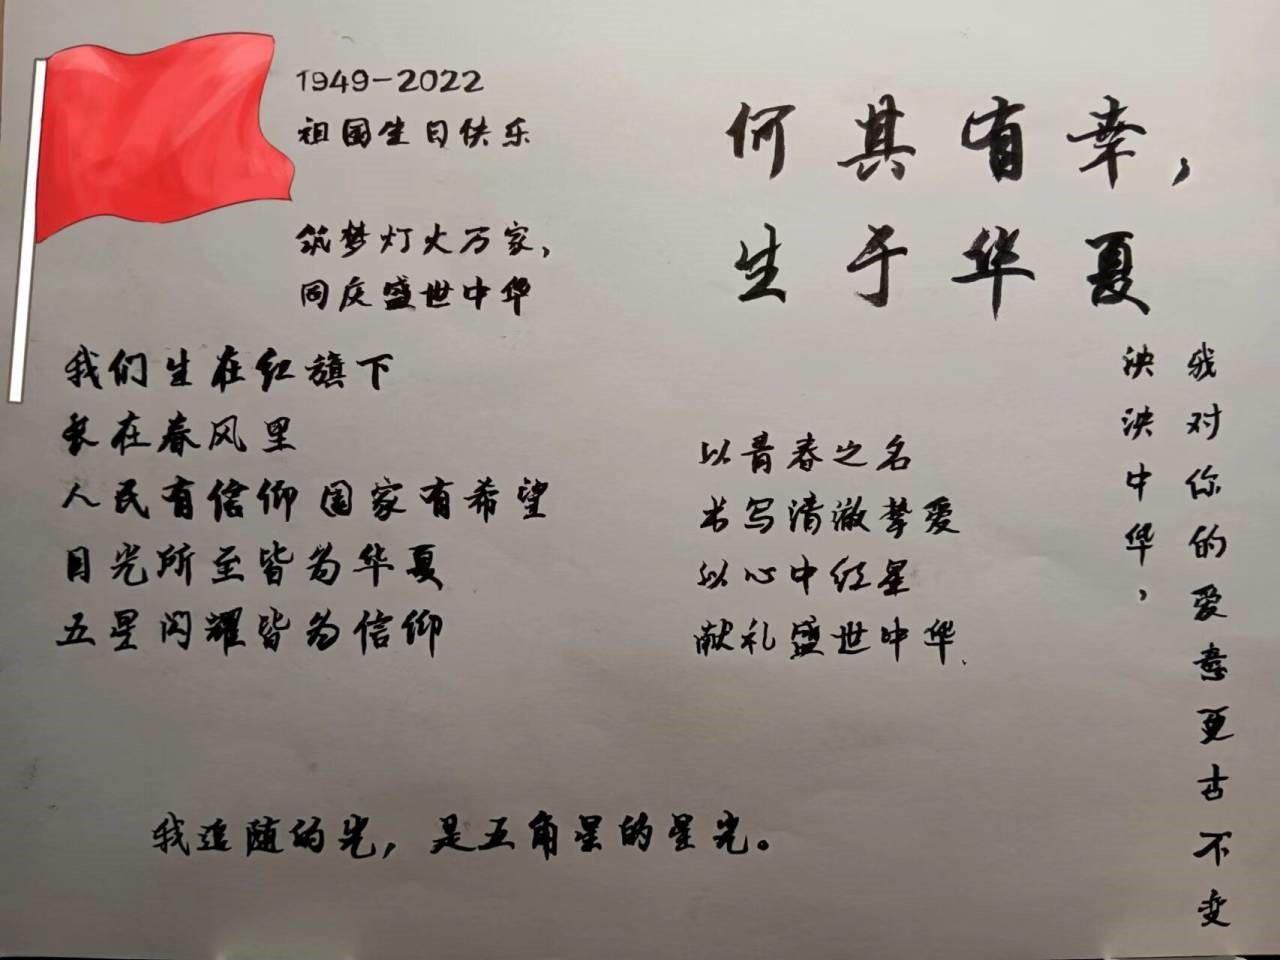 1949-2022
祖国生日快乐
筑梦灯火万家，
同庆盛世中华
何其有幸，
生于华夏
我们生在红旗下
长在春风里
人民有信仰 国家有希望
目光所至皆为华夏
五星闪耀皆为信仰
以青春之名
书写清澈挚爱
以心中红星
献礼盛世中华
泱泱中华，
我对你的爱意亘古不变
我追随的光，是五角星的星光。